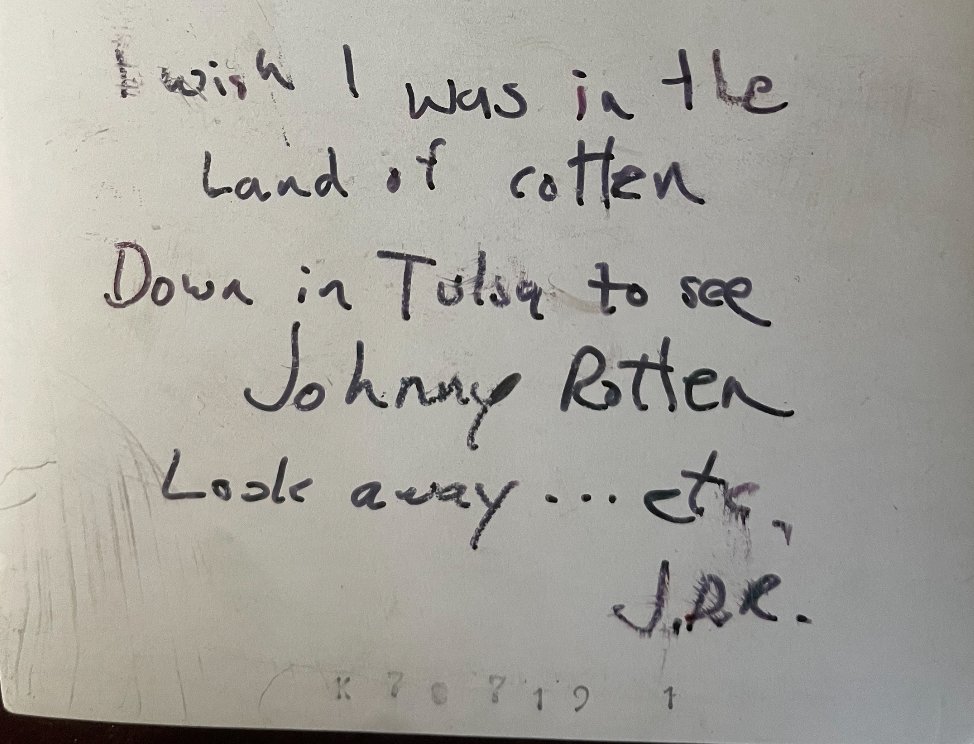 I wish I was in the
Land of cotten
Down in Tulsa to see
Johnny Rotten
Look away ... etc.
J.D.R.